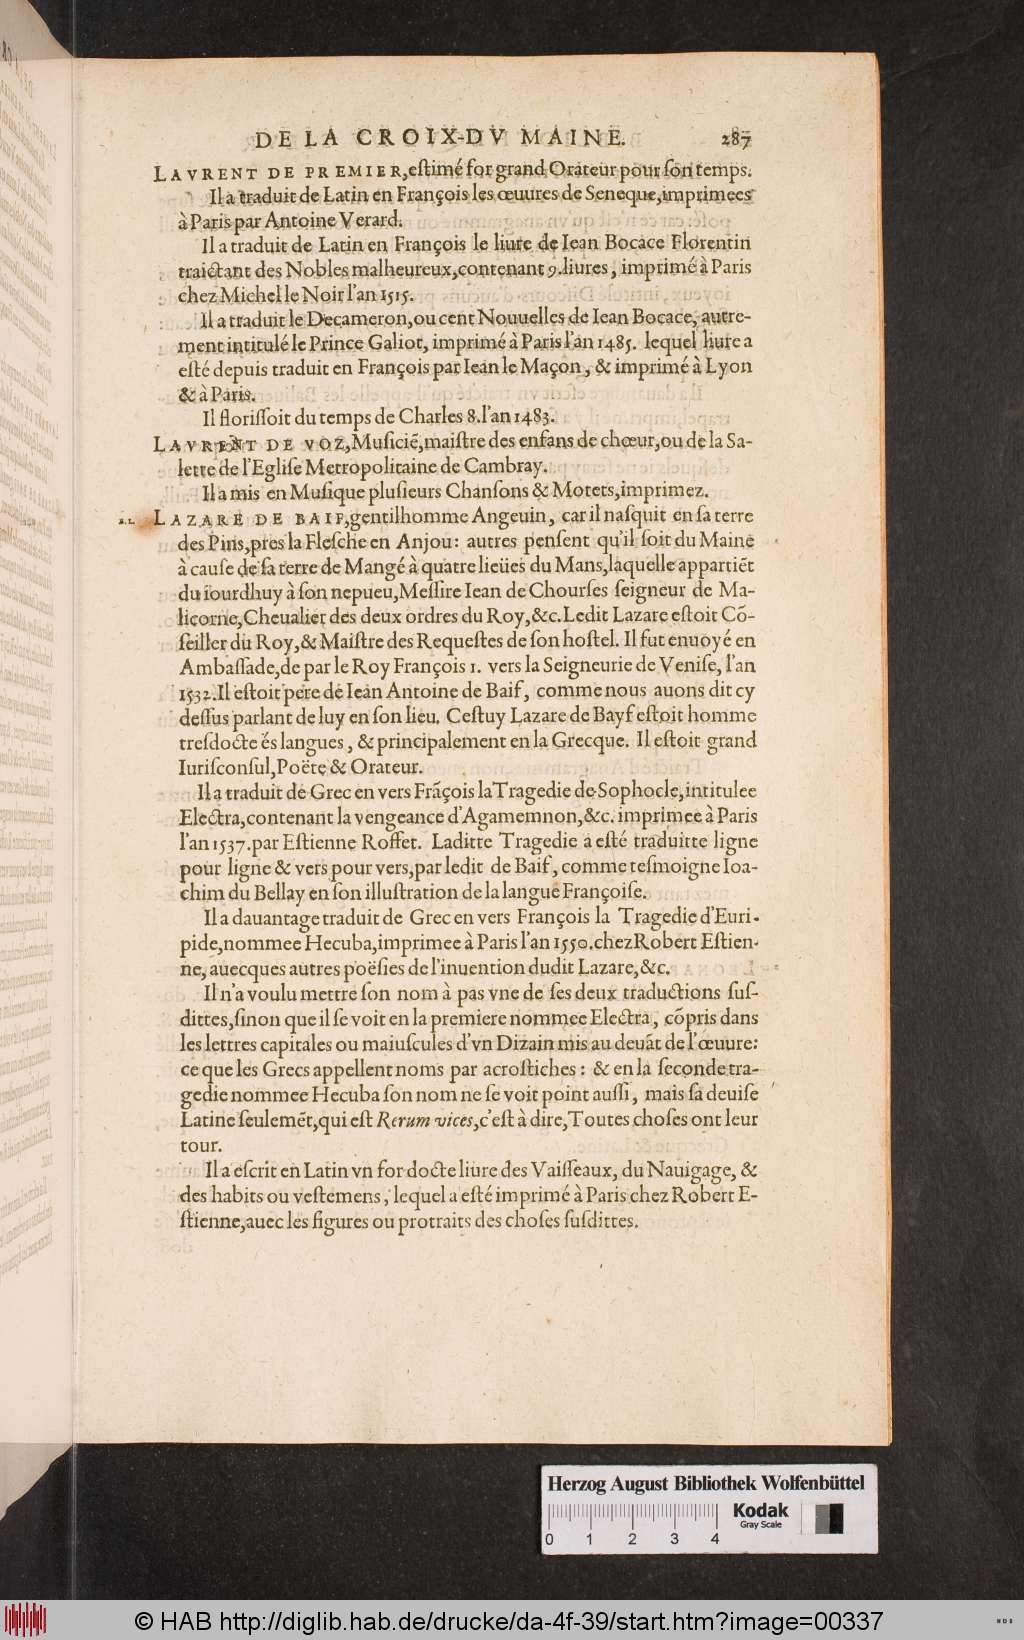 DE LA CROIX-DV MAINE. 287
LAVRENT DE PREMIER, eſtimé for grand Orateur pour ſon temps.
Il a traduit de Latin en François les œuures de Seneque, imprimees
à Paris par Antoine Verard.
Il a traduit de Latin en François le liure de Iean Bocace Florentin
traictant des Nobles malheureux, contenant 9. liures, imprimé à Paris
chez Michel le Noir l'an 1515.
Il a traduit le Decameron, ou cent Nouuelles de Iean Bocace, autre-
ment intitulé le Prince Galiot, imprimé à Paris l'an 1485. lequel liure a
eſté depuis traduit en François par Iean le Maçon, & imprimé à Lyon
& à Paris.
Il floriſſoit du temps de Charles 8. l'an 1483.
LAVRENT DE VOZ, Muſiciẽ, maiſtre des enfans de chœur, ou de la Sa-
lette de l'Egliſe Metropolitaine de Cambray.
Il a mis en Muſique pluſieurs Chanſons & Motets, imprimez.
LAZARE DE BAIF, gentilhomme Angeuin, car il naſquit en ſa terre
des Pins, pres la Fleſche en Anjou: autres penſent qu'il ſoit du Maine
à cauſe de ſa terre de Mangé à quatre lieües du Mans, laquelle appartiẽt
du iourdhuy à ſon nepueu, Meſſire Iean de Chourſes ſeigneur de Ma-
licorne, Cheualier des deux ordres du Roy, &c. Ledit Lazare eſtoit Cõ-
ſeiller du Roy, & Maiſtre des Requeſtes de ſon hoſtel. Il fut enuoyé en
Ambaſſade, de par le Roy François 1. vers la Seigneurie de Veniſe, l'an
1532. Il eſtoit pere de Iean Antoine de Baif, comme nous auons dit cy
deſſus parlant de luy en ſon lieu. Ceſtuy Lazare de Bayf eſtoit homme
treſdocte és langues, & principalement en la Grecque. Il eſtoit grand
Iuriſconſul, Poëte & Orateur.
Il a traduit de Grec en vers Frãçois la Tragedie de Sophocle, intitulee
Electra, contenant la vengeance d'Agamemnon, &c. imprimee à Paris
l'an 1537. par Eſtienne Roffet. Laditte Tragedie a eſté traduitte ligne
pour ligne & vers pour vers, par ledit de Baif, comme teſmoigne Ioa-
chim du Bellay en ſon illuſtration de la langue Françoiſe.
Il a dauantage traduit de Grec en vers François la Tragedie d'Euri-
pide, nommee Hecuba, imprimee à Paris l'an 1550. chez Robert Eſtien-
ne, auecques autres poëſies de l'inuention dudit Lazare, &c.
Il n'a voulu mettre ſon nom à pas vne de ſes deux traductions ſuſ-
dittes, ſinon que il ſe voit en la premiere nommee Electra, cõpris dans
les lettres capitales ou maiuſcules d'vn Dizain mis au deuãt de l'œuure:
ce que les Grecs appellent noms par acroſtiches: & en la ſeconde tra-
gedie nommee Hecuba ſon nom ne ſe voit point auſſi, mais ſa deuiſe
Latine ſeulemẽt, qui eſt Rerum vices, c'eſt à dire, Toutes choſes ont leur
tour.
Il a eſcrit en Latin vn for docte liure des Vaiſſeaux, du Nauigage, &
des habits ou veſtemens, lequel a eſté imprimé à Paris chez Robert E-
ſtienne, auec les figures ou protraits des choſes ſuſdittes.
Herzog August Bibliothek Wolfenbüttel
Kodak
Gray Scale
0 1 2 3 4
© HAB http://diglib.hab.de/drucke/da-4f-39/start.htm?image=00337